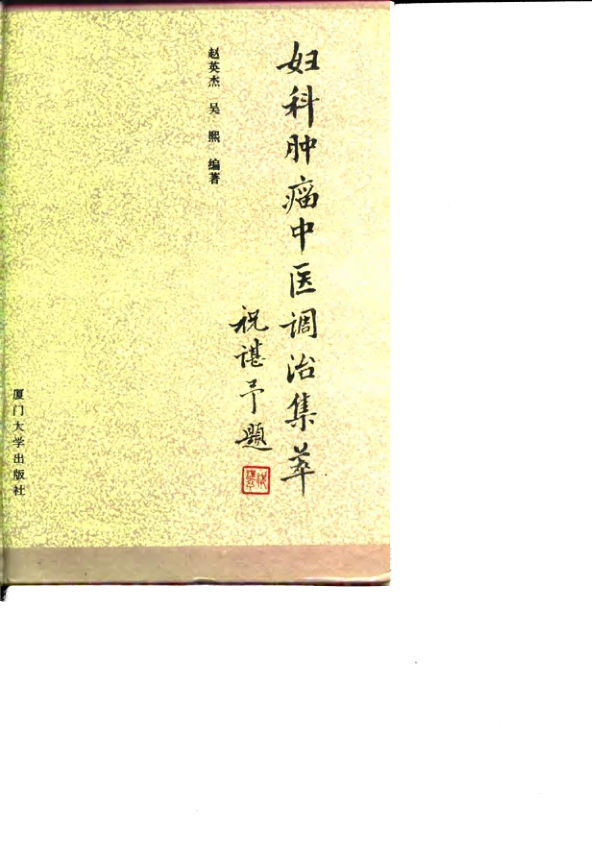 妇科肿瘤中医调治集萃
祝谌予题
赵英杰 吴 熙 编著
厦门大学出版社